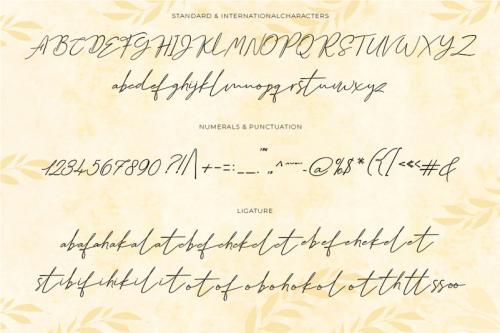 STANDARD & INTERNATIONALCHARACTERS
ABCDEFGHIJKLMNOPQRSTUVWXYZ
abcdefghijklmnopqrstuvwxyz
NUMERALS & PUNCTUATION
1234567890 ?!/\ +-=:
@%$*({[ #&
LIGATURE
abafahakalatcbcfchckclctebefehekelet
stibifihikilitotofobohokolotthttssoo